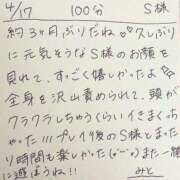 4/17 100分 S様
約3ヶ月ぶりだね♡♡久しぶり
に元気そうなS様のお顔を
見れて、すっごく嬉しかったよ♪
全身を沢山責められて、頭が
クラクラしちゃうくらいイきまくっち
ゃった!!!プレイ後のS様とまった
り時間も楽しかった(˶ᵕᵕ˶)また一緒
に遊ぼうね!! みと